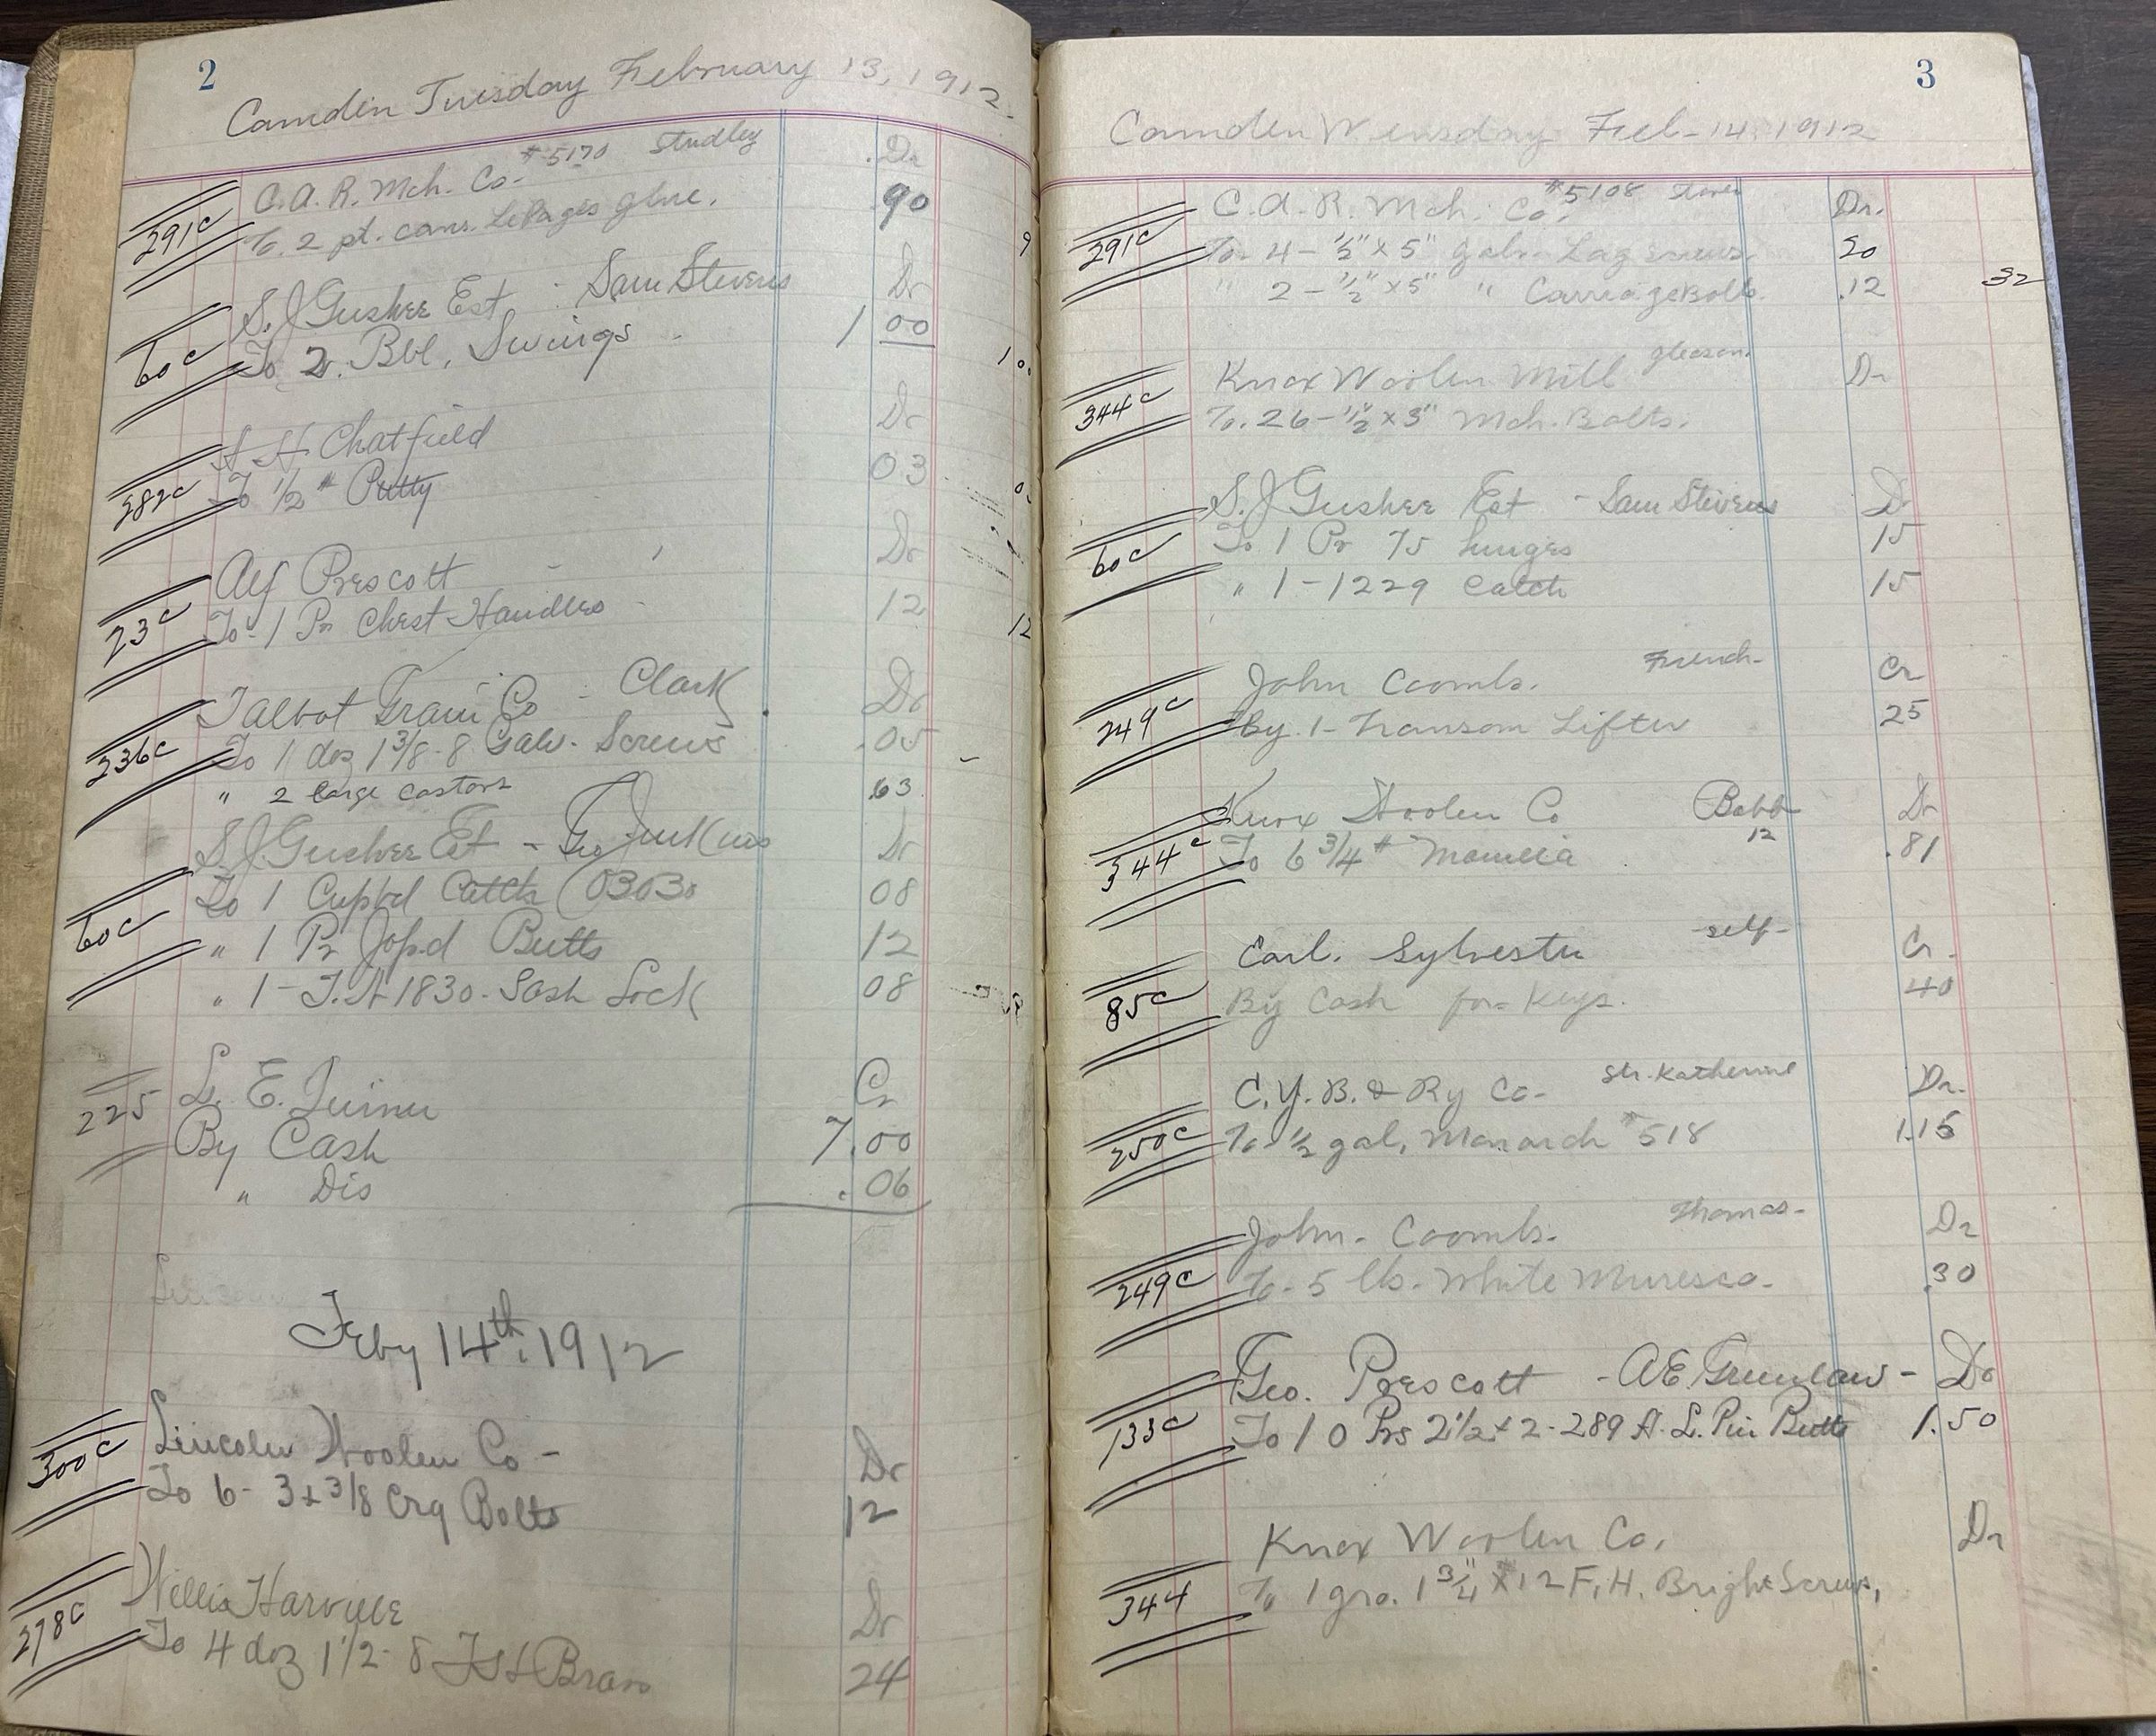 2
Camden Tuesday February 13, 1912
C.A.R. Mch. Co. #5170 Studley Dr
291c
To 2 pt. cans. LePages glue. .90
9
S.J. Gushee Est - Sam Stevens Dr
60c
To 2 Bbl. Swings 1 00
1 0
A H Chatfield Dr
282c
To 1/2 # Putty 03
0
Alf Prescott Dr
23c
To 1 Pr Chest Handles 12
12
Talbot Grain Co - Clark Dr
236c
To 1 doz 1 3/8-8 Galv. Screws .05
" 2 large castors .63
S.J. Gushee Est - Geo Dr
To 1 Cupbd Catch 03030 08
60c
" 1 Pr Jap.d Butts 12
" 1 - 1830 - Sash Lock 08
L. E. Cr
225
By Cash 7.00
" Dis .06
Feby 14th. 1912
Lincoln Woolen Co - Dr
300c
To 6 - 3 x 3/8 Crg Bolts 12
Willis Harville Dr
278c
To 4 doz 1 1/2 - 8 Brass 24
3
Camden Wensday Feb - 14. 1912
C.A.R. Mch. Co. #5108 Dr.
291c
To 4 - 1/2" x 5" galv. Lag screws. 20
" 2 - 1/2" x 5" " Carriage Bolts. .12 32
Knox Woolen Mill gleason. Dr
344c
To. 26 - 1/2" x 3" Mch. Bolts.
S.J. Gushee Est - Sam Stevens Dr
60c
To 1 Pr 75 hinges 15
" 1 - 1229 Catch 15
John Coombs. French - Cr
249c
By. 1 - Transom Lifter 25
Knox Woolen Co Babb Dr
344c
To 6 3/4 # Manilla 12 .81
Carl. Sylvester - self - Cr.
85c
By Cash for - Keys. 40
C.Y.B. & Ry Co - Str. Katherine Dr.
250c
To 1/2 gal, Monarch #518 1.15
John. Coombs. Thomas - Dr
249c
To - 5 lbs. White Muresco. .30
Geo. Prescott - A E Greenlaw - Dr
133c
To 10 Prs 2 1/2 x 2 - 289 A. L. Pin Butts 1.50
Knox Woolen Co. Dr
344
To 1 gro. 1 3/4" x 12 F. H. Bright Screws,